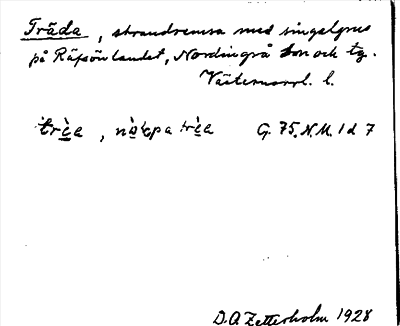 Träda, strandremsa med singelgrus
på Räfsön landet, Nordingrå sn och tg.
Västernorrl. l.
trɛ̀a, nɔ̀kpa trɛ̀a G. 75. N.M. 1 d 7
D.O. Zetterholm 1928